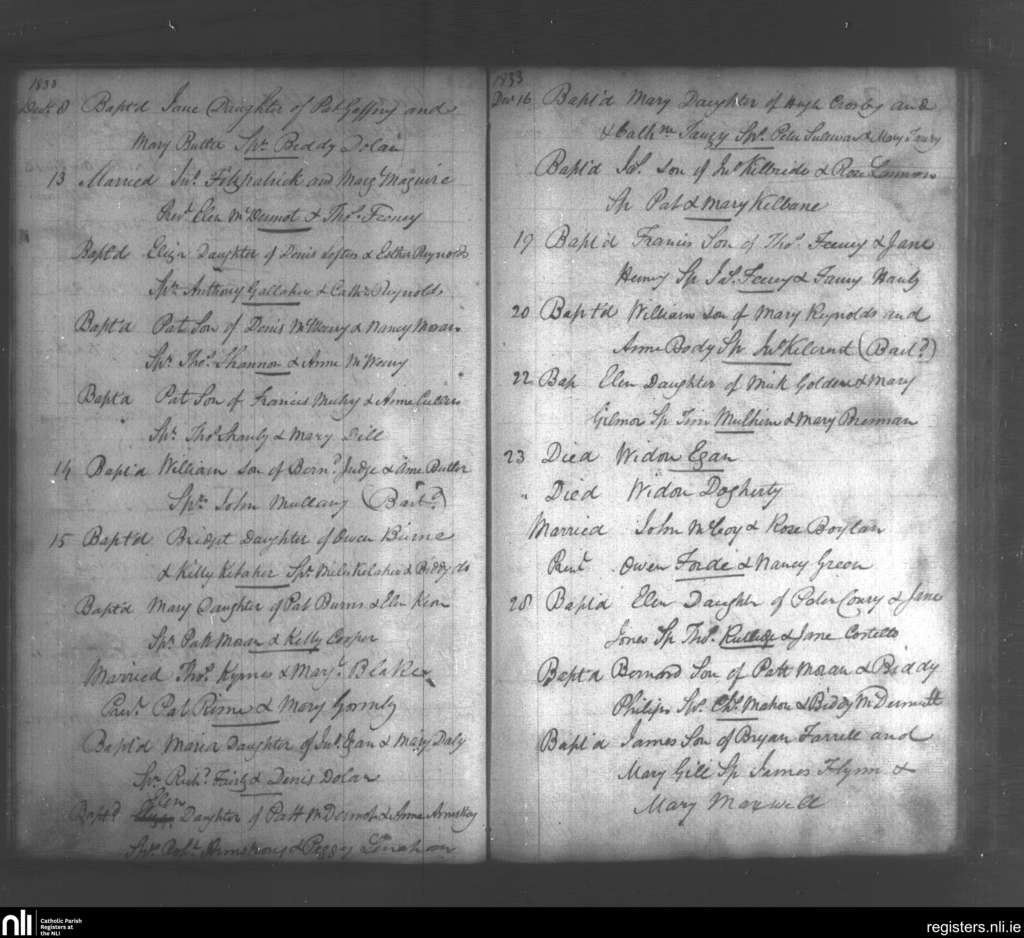 1833
Decr. 8 Bapt'd Jane Daughter of Pat Gaffny and
Mary Butler Spr. Biddy Dolan
13 Married Jno. Fitzpatrick and Margt. Maguire
Prest. Elen McDermot & Thos. Feeney
Bapt'd Eliza Daughter of Denis Loftus & Esther Reynolds
Spr. Anthony Gallaher & Cathr. Reynolds
Bapt'd Pat Son of Denis & Nancy Moran
Spr. Thos. Shannon & Anne
Bapt'd Pat Son of Francis & Anne
Spr. Thos. & Mary Dill
14 Bapt'd William Son of Bernd. Judge & Anne Butler
Spr. John Mullany (Bast.d)
15 Bapt'd Bridget Daughter of Owen Birne
& Kitty Kelaher Spr. Miles Kelaher & Biddy do
Bapt'd Mary Daughter of Pat Burns & Elen Keon
Spr. Patt Moran & Kitty Cooper
Married Thos. Hymes & Mary Blake
Prest. Pat Birne & Mary Gormly
Bapt'd Maria Daughter of Jno. Egan & Mary Daly
Spr. Richd. & Denis Dolan
Elen
Bapt'd Daughter of Patt McDermot & Anne
Spr. Robt. Armstrong & Peggy
1833
Decr 16 Bapt'd Mary Daughter of Hugh Crosby and
& Cathne Spr. Peter Sullivan & Mary
Bapt'd Js. Son of Jno Kilbride & Rose Lannon
Sp Pat & Mary Kilbane
19 Bapt'd Francis Son of Thos. Feeney & Jane
Henry Sp Js. Feeney & Fanny Hanly
20 Bapt'd William Son of Mary Reynolds and
Anne Body Sp Jno (Bast.d)
22 Bap Elen Daughter of Mick Golden & Mary
Gilmor Sp Tim Mulhern & Mary Brennan
23 Died Widow Egan
" Died Widow Dogherty
Married John McCoy & Rose Boylan
Prest. Owen Forde & Nancy Green
28 Bapt'd Elen Daughter of Peter Conry & Jane
Jones Sp Thos. Rutlege & Jane Costello
Bapt'd Bernard Son of Patt Moran & Biddy
Philips Spr. Chs. Mahon & Biddy McDermott
Bapt'd James Son of Bryan Farrell and
Mary Gill Sp James Flynn &
Mary Maxwell
nli Catholic Parish
Registers at
the NLI
registers.nli.ie